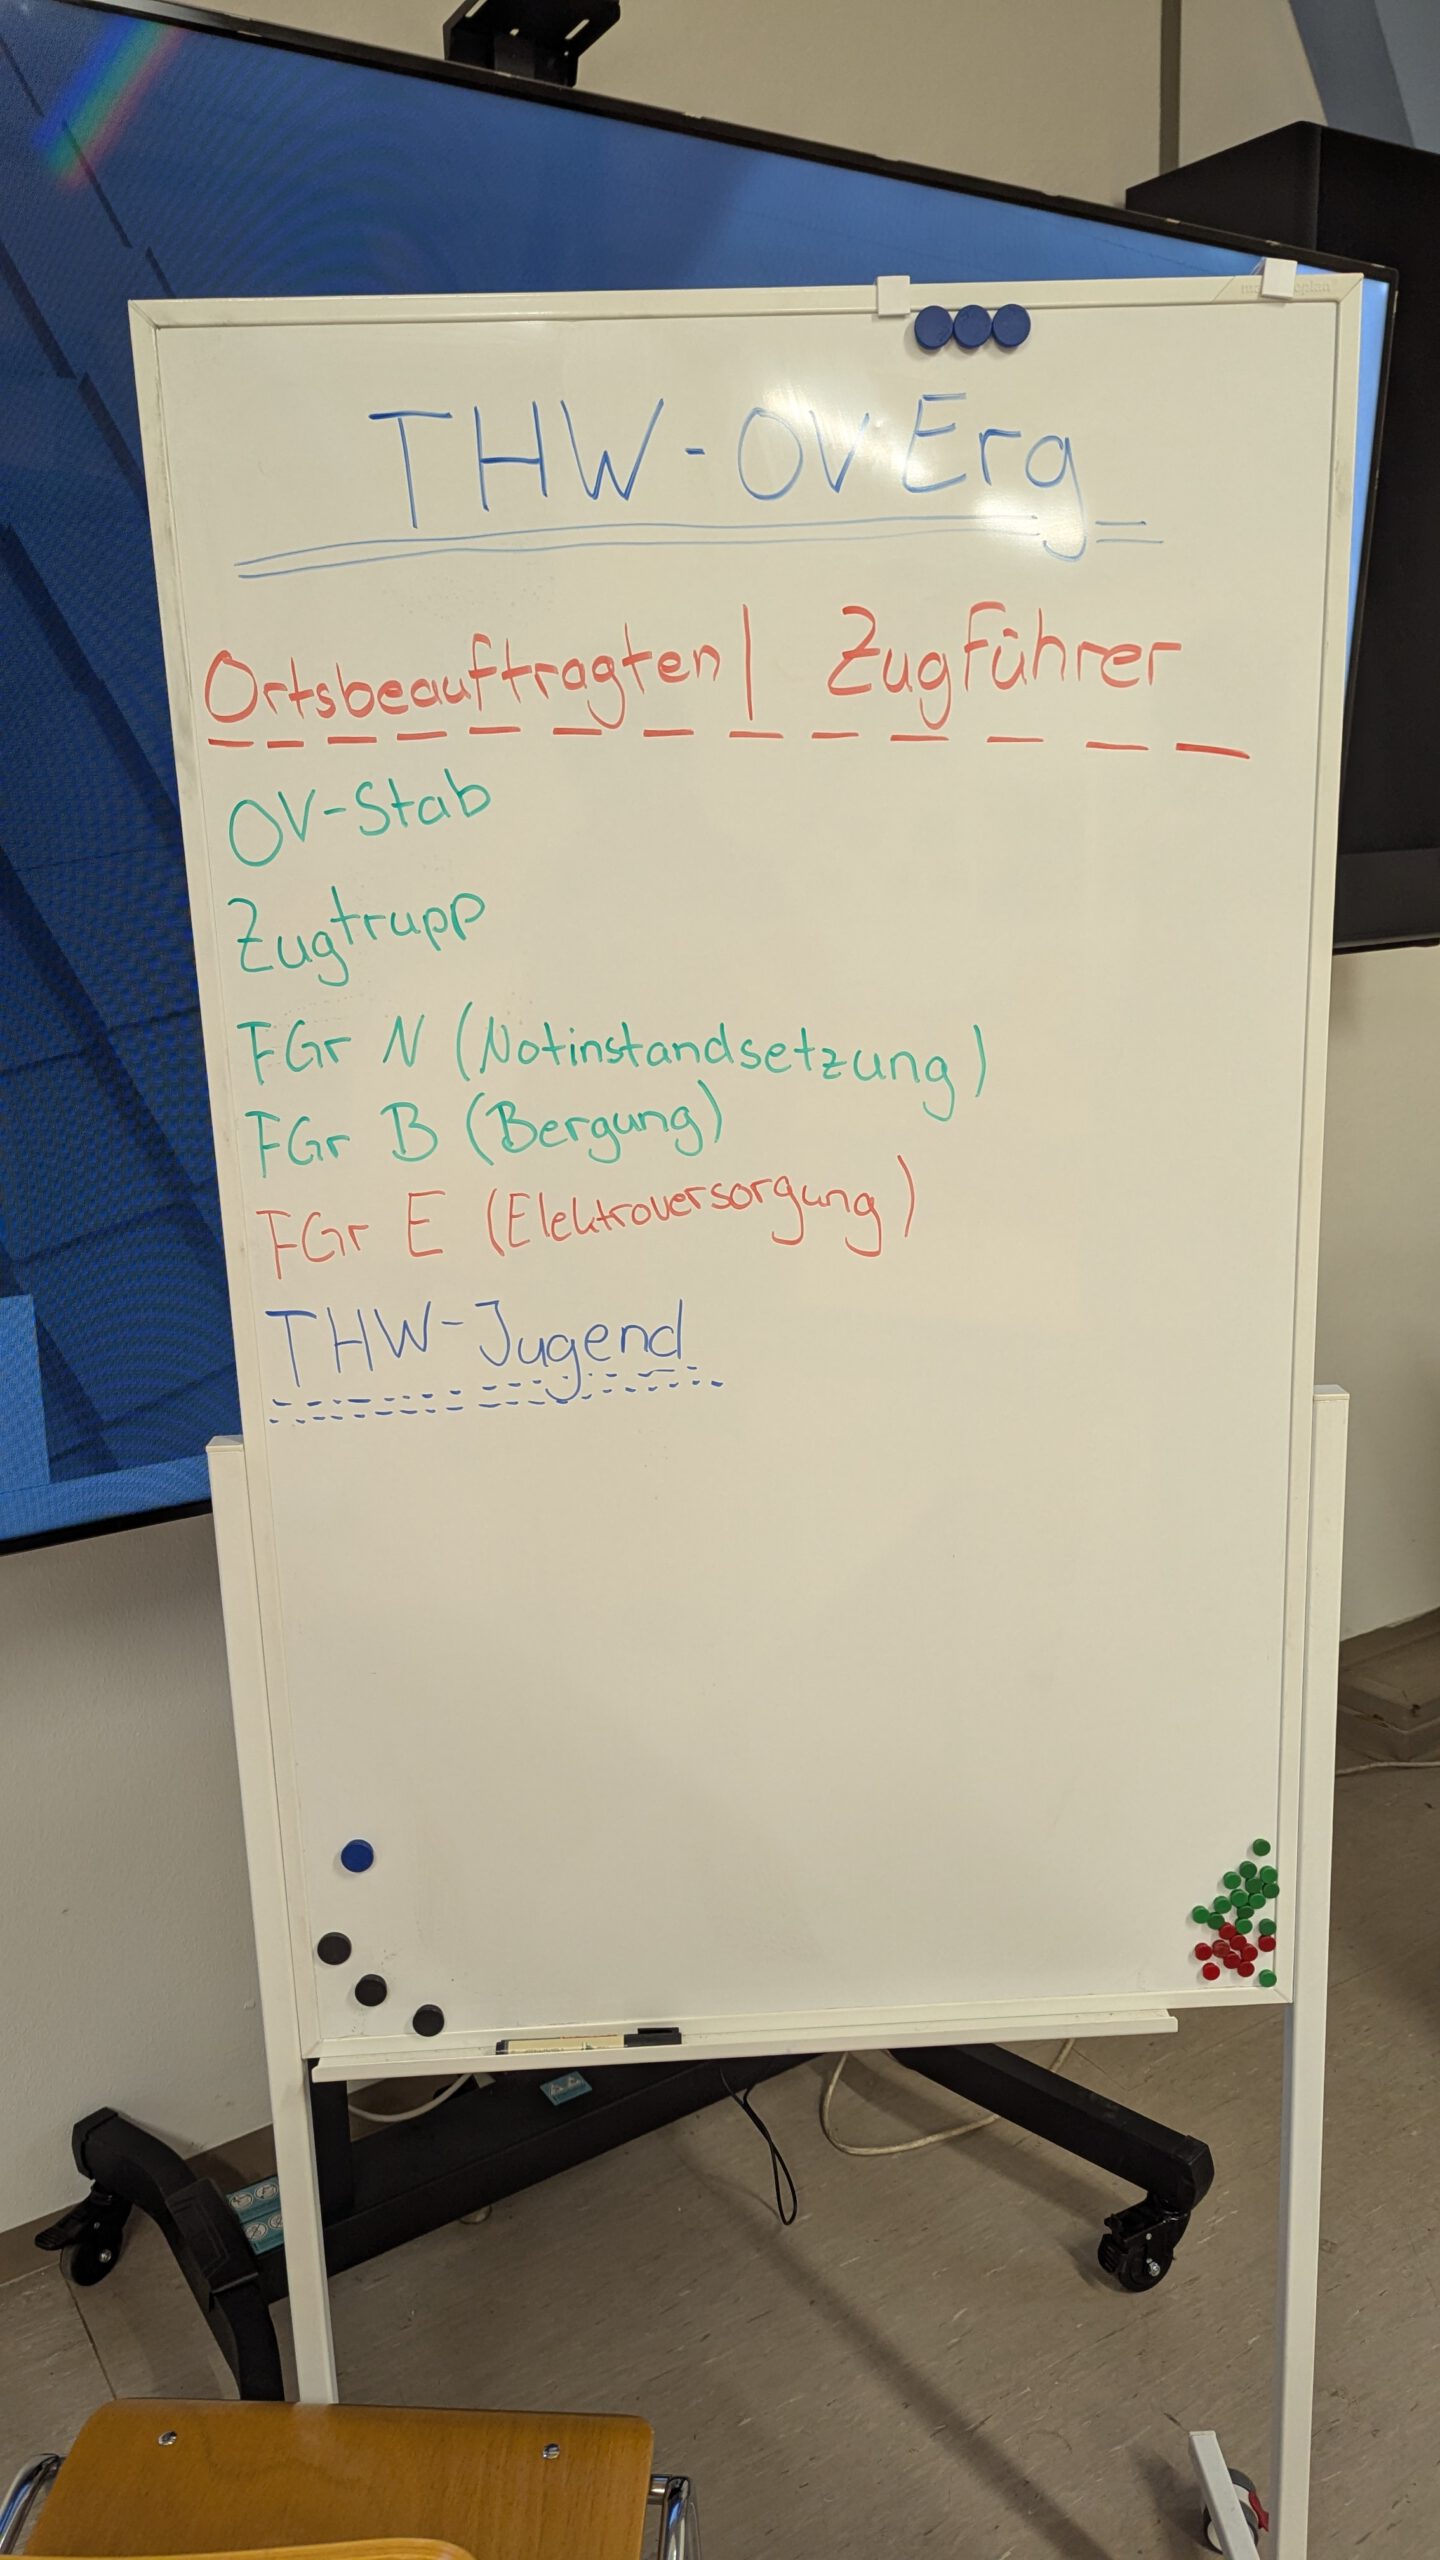 THW-OV Erg
Ortsbeauftragten | Zugführer
OV-Stab
Zugtrupp
FGr N (Notinstandsetzung)
FGr B (Bergung)
FGr E (Elektroversorgung)
THW-Jugend